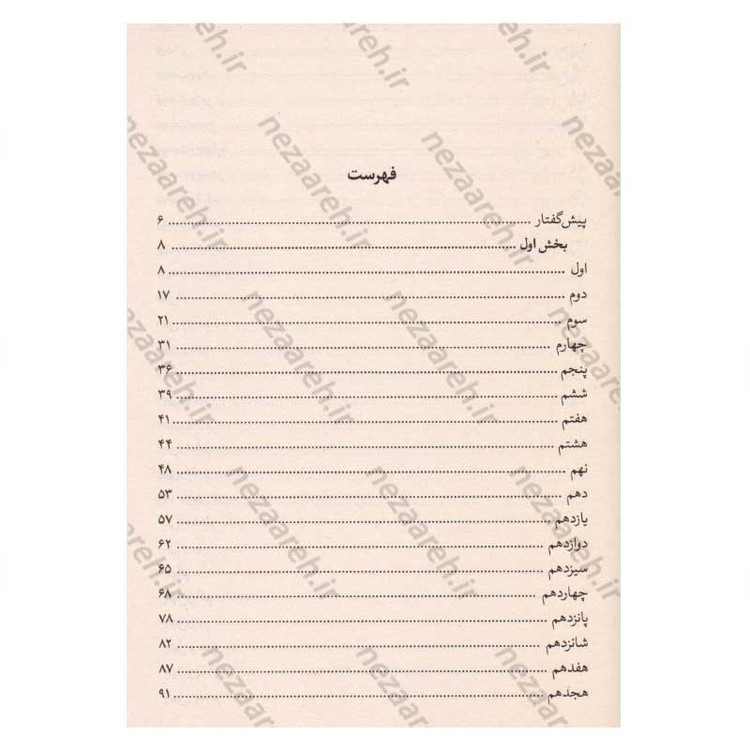 فهرست
پیش‌گفتار ۶
بخش اول ۸
اول ۸
دوم ۱۷
سوم ۲۱
چهارم ۳۱
پنجم ۳۶
ششم ۳۹
هفتم ۴۱
هشتم ۴۴
نهم ۴۸
دهم ۵۳
یازدهم ۵۷
دوازدهم ۶۲
سیزدهم ۶۵
چهاردهم ۶۸
پانزدهم ۷۸
شانزدهم ۸۲
هفدهم ۸۷
هجدهم ۹۱
nezaareh.ir